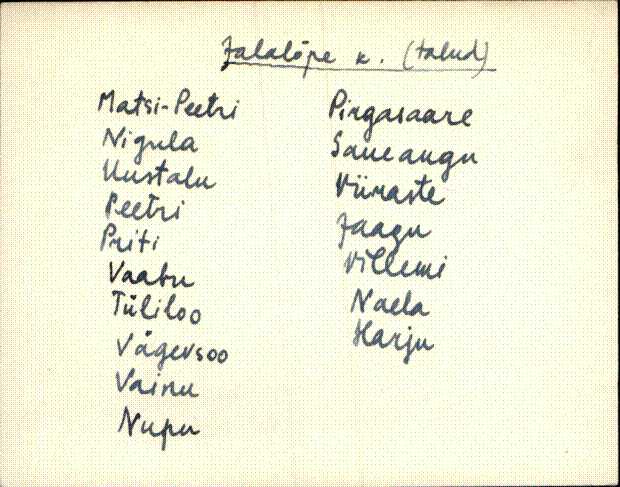 Jalalõpe k. (talud)
Matsi-Peetri
Nigula
Uustalu
Peetri
Priti
Vaabu
Tüliloo
Vägevsoo
Vainu
Nupu
Pirgasaare
Saueaugu
Viiraste
Jaagu
Villemi
Naela
Harju